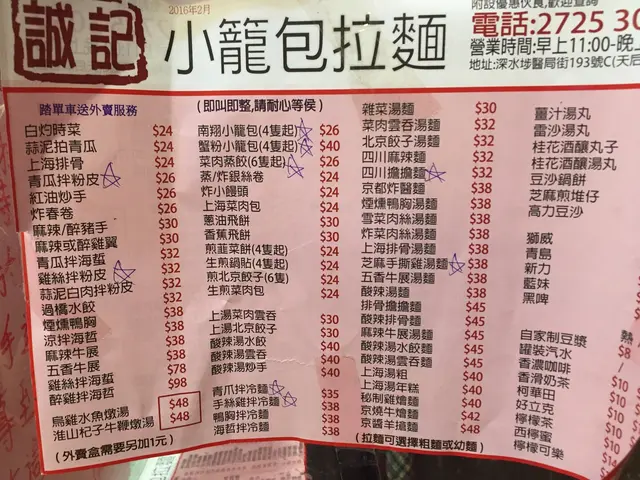 誠記
2016年2月
小籠包拉麵
附設優惠伙食,歡迎查詢
電話:2725 30
營業時間:早上11:00-晚
地址:深水埗醫局街193號C(天后
踏單車送外賣服務
白灼時菜 $24
蒜泥拍青瓜 $24
上海排骨 $24
青瓜拌粉皮 $26
紅油炒手 $26
炸春卷 $26
麻辣/醉豬手 $30
麻辣或醉雞翼 $30
青瓜拌海蜇 $32
雞絲拌粉皮 $32
蒜泥白肉拌粉皮 $32
過橋水餃 $32
煙燻鴨胸 $38
涼拌海哲 $38
麻辣牛展 $38
五香牛展 $38
雞絲拌海蜇 $78
醉雞拌海蜇 $98
烏雞水魚燉湯 $48
淮山杞子牛鞭燉湯 $48
(外賣盒需要另加1元)
(即叫即整,請耐心等侯)
南翔小籠包(4隻起) $26
蟹粉小籠包(4隻起) $40
菜肉蒸餃(6隻起) $26
蒸/炸銀絲卷 $24
炸小饅頭 $24
上海菜肉包 $24
蔥油飛餅 $30
香蕉飛餅 $30
煎韮菜餅(4隻起) $24
生煎鍋貼(4隻起) $24
煎北京餃子(6隻) $24
生煎菜肉包 $24
上湯菜肉雲吞 $30
上湯北京餃子 $30
酸辣湯水餃 $40
酸辣湯雲吞 $40
酸辣湯炒手 $40
青爪拌冷麵 $35
手絲雞拌冷麵 $38
鴨胸拌冷麵 $38
海哲拌冷麵 $38
雜菜湯麵 $30
菜肉雲吞湯麵 $32
北京餃子湯麵 $32
四川麻辣麵 $32
四川擔擔麵 $32
京都炸醬麵 $38
煙燻鴨胸湯麵 $38
雪菜肉絲湯麵 $38
炸菜肉絲湯麵 $38
上海排骨湯麵 $38
芝麻手撕雞湯麵 $38
五香牛展湯麵 $38
酸辣湯麵 $38
排骨擔擔麵 $45
酸辣排骨麵 $45
麻辣牛展湯麵 $45
酸辣湯水餃麵 $45
酸辣湯雲吞麵 $45
上海湯粗 $40
上海湯年糕 $40
秘制雞燴麵 $40
京燒牛燴麵 $42
京醬羊搶麵 $48
(拉麵可選擇粗麵或幼麵)
薑汁湯丸
雷沙湯丸
桂花酒釀丸子
桂花酒釀湯丸
豆沙鍋餅
芝麻煎堆仔
高力豆沙
獅威
青島
新力
藍妹
黑啤
熱/
自家制豆漿 $8
罐裝汽水 /
香濃咖啡 $10
香滑奶茶 $10
柯華田 $10
好立克 $10
檸檬茶 $10
西檸蜜 $10
檸檬可樂 $14